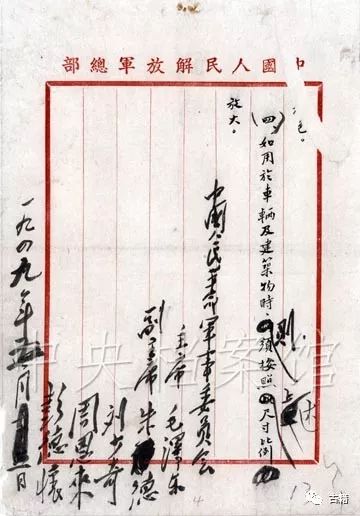 中國人民解放軍總部
色。
(四)、如用於車輛及建築物時，則須按照上述尺寸比例
放大。
中國人民革命軍事委員會
主席 毛澤東
副主席 朱德
劉少奇
周恩來
彭德懷
一九四九年 月 日
4
中央档案馆
古籍